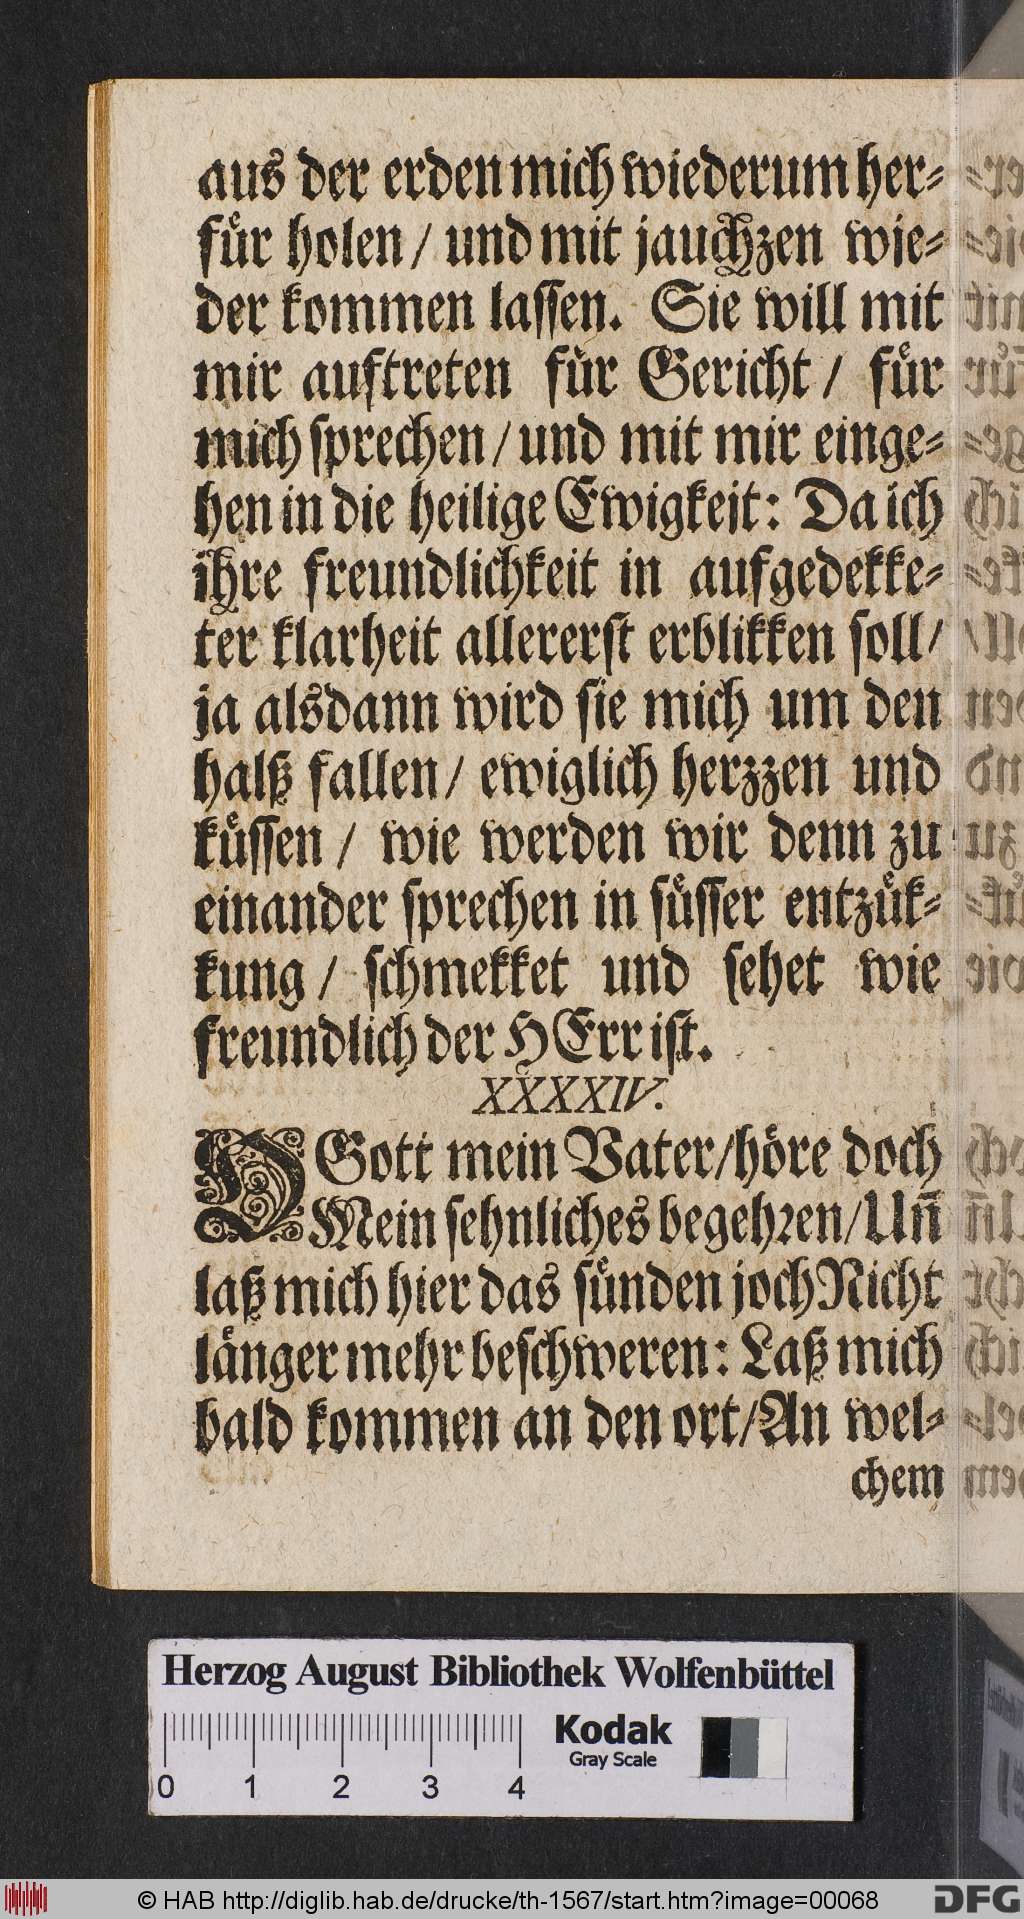 aus der erden mich wiederum her-
fuͤr holen / und mit jauchzen wie-
der kommen lassen. Sie will mit
mir auftreten fuͤr Gericht / fuͤr
mich sprechen / und mit mir einge-
hen in die heilige Ewigkeit: Da ich
ihre freundlichkeit in aufgedekke-
ter klarheit allererst erblikken soll /
ja alsdann wird sie mich um den
halß fallen / ewiglich herzzen und
kuͤssen / wie werden wir denn zu
einander sprechen in suͤsser entzuͤk-
kung / schmekket und sehet wie
freundlich der HErr ist.
XXXXIV.
O Gott mein Vater / hoͤre doch
Mein sehnliches begehren / Uñ
laß mich hier das suͤnden joch Nicht
laͤnger mehr beschweren: Laß mich
bald kommen an den ort / An wel-
chem
Herzog August Bibliothek Wolfenbüttel
Kodak
Gray Scale
0 1 2 3 4
© HAB http://diglib.hab.de/drucke/th-1567/start.htm?image=00068
DFG